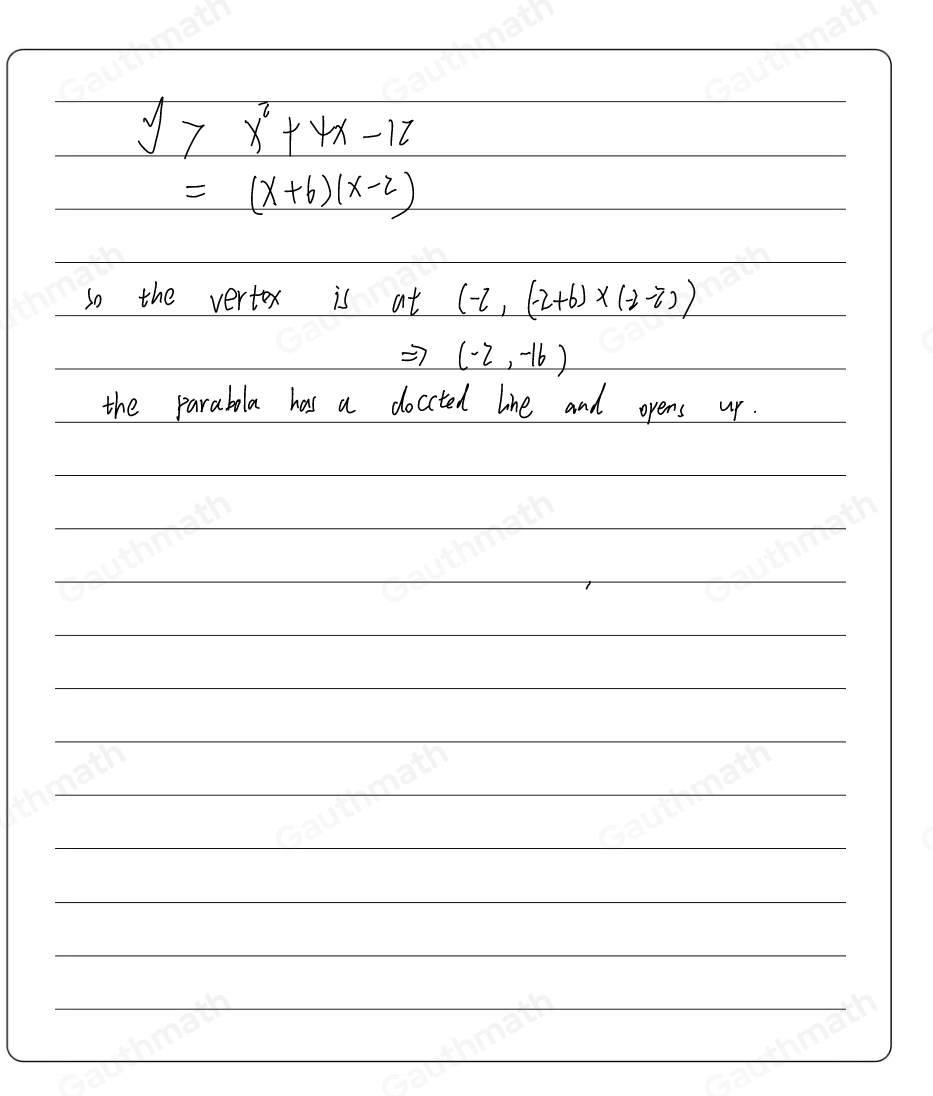 y > x² + 4x - 12
= (x+6)(x-2)
so the vertex is at (-2, (-2+6) × (-2-2))
⇒ (-2, -16)
the parabola has a doccted line and opens up.
Gauthmath